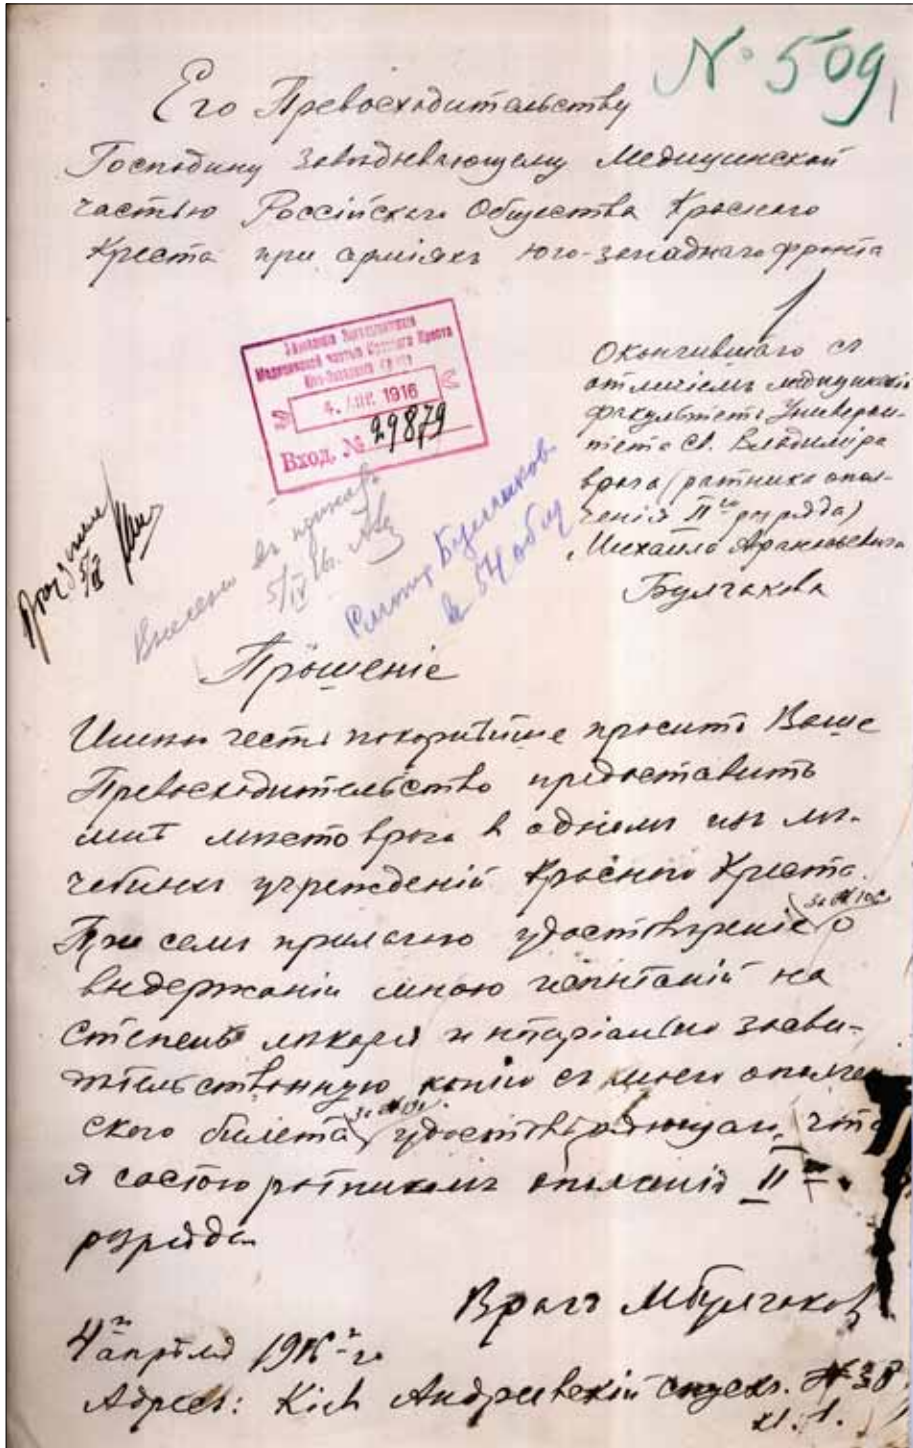 № 509
Его Превосходительству
Господину Завѣдывающему Медицинской
частью Россійскаго Общества Краснаго
Креста при арміяхъ юго-западнаго фронта
4. АПР. 1916
Вход. № 29879
Окончившаго съ
отличіемъ медицинскій
факультетъ Универси-
тета Св. Владиміра
врача (ратника опол-
ченія II го разряда)
Михаила Афанасьевича
Булгакова
5/IV
Внесено въ
5/IV 16г.
Булгаков
Прошеніе
Имѣю честь покорнѣйше просить Ваше
Превосходительство предоставить
мнѣ мѣсто врача в одномъ изъ лѣ-
чебныхъ учрежденій Краснаго Креста.
При семъ прилагаю удостовѣреніе о
выдержаніи мною испытаній на
степень лѣкаря и нотаріально засви-
дѣтельствованную копію съ моего ополчен
ского билета, удостовѣряющаго, что
я состою ратникомъ ополченія II го
разряда
Врачъ МБулгаков
4 го апрѣля 1916 г-го
Адресъ: Кіевъ Андреевскій спускъ. № 38
кв. 1.